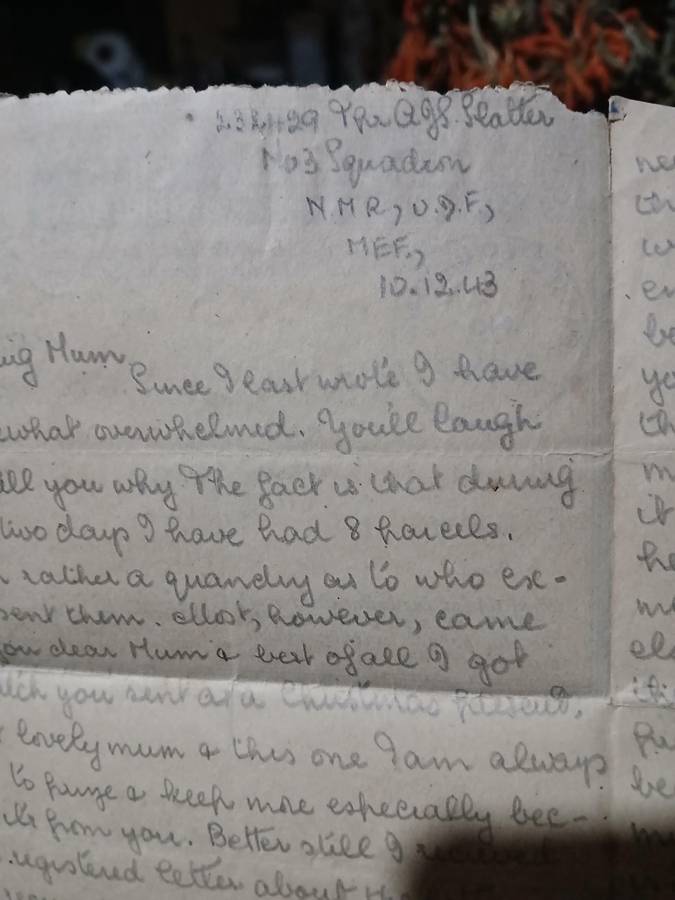 Tpr A.G.S. Slatter
No 3 Squadron
N.M.R., U.D.F.,
MEF.,
10.12.43
Mum
Since I last wrote I have
what overwhelmed. You'll laugh
you why The fact is that during
two days I have had 8 parcels.
rather a quandry as to who ex-
sent them. Most, however, came
you dear Mum & best of all I got
you sent as a Christmas present.
lovely mum & this one I am always
to prize & keep more especially bec-
from you. Better still I received
registered letter about
ne
thi
w
en
be
yo
th
m
it
he
m
els
be